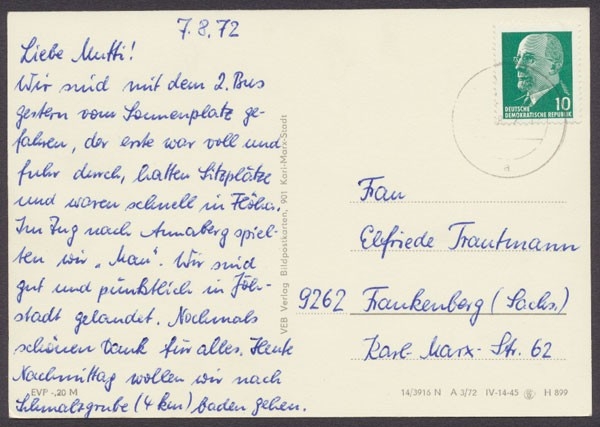 7.8.72
Liebe Mutti!
Wir sind mit dem 2. Bus
gestern vom Sonnenplatz ge-
fahren, der erste war voll und
fuhr durch, hatten Sitzplätze
und waren schnell in Flöha.
Im Zug nach Annaberg spiel-
ten wir „Mau“. Wir sind
gut und pünktlich in Jöh-
stadt gelandet. Nochmals
schönen Dank für alles. Heute
Nachmittag wollen wir nach
Schmalzgrube (4 km) baden gehen.
EVP -,20 M
VEB Verlag Bildpostkarten, 901 Karl-Marx-Stadt
10
DEUTSCHE
DEMOKRATISCHE REPUBLIK
Frau
Elfriede Trautmann
9262 Frankenberg (Sachs.)
Karl-Marx-Str. 62
14/3916 N A 3/72 IV-14-45 H 899